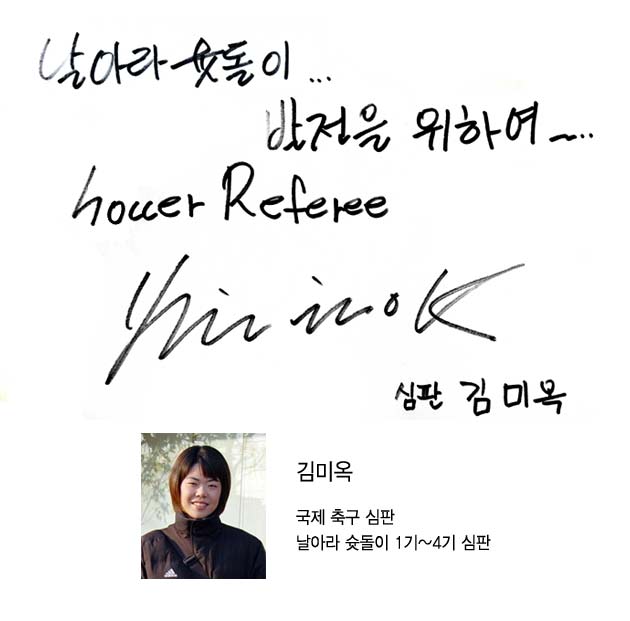 날아라 슛돌이 ...
발전을 위하여~...
Soccer Referee
심판 김미옥
김미옥
국제 축구 심판
날아라 슛돌이 1기~4기 심판
adidas